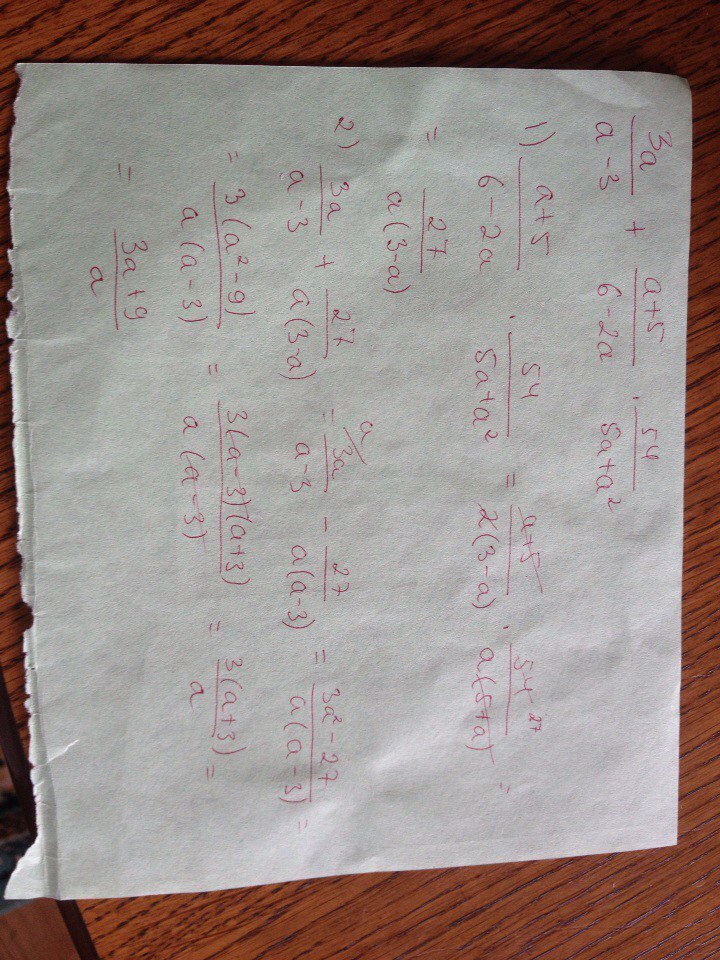 3a/(a-3) + (a+5)/(6-2a) · 54/(5a+a²)
1) (a+5)/(6-2a) · 54/(5a+a²) = (a+5)/(2(3-a)) · 54 27/(a(5+a)) =
= 27/(a(3-a))
2) 3a/(a-3) + 27/(a(3-a)) = a/ 3a/(a-3) - 27/(a(a-3)) = (3a²-27)/(a(a-3)) =
= 3(a²-9)/(a(a-3)) = 3(a-3)(a+3)/(a(a-3)) = 3(a+3)/a =
= (3a+9)/a